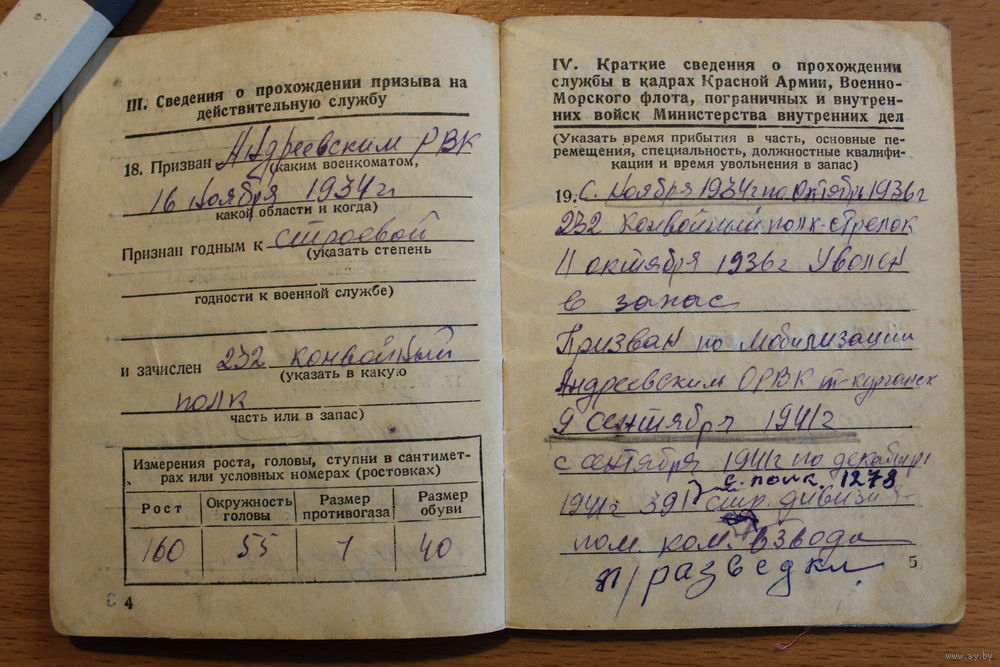 III. Сведения о прохождении призыва на
действительную службу
18. Призван Андреевским РВК
(каким военкоматом,
16 Ноября 1934 г
какой области и когда)
Признан годным к строевой
(указать степень
годности к военной службе)
и зачислен 232 конвойный
(указать в какую
полк
часть или в запас)
Измерения роста, головы, ступни в сантимет-
рах или условных номерах (ростовках)
Рост Окружность головы Размер противогаза Размер обуви
160 55 1 40
4
IV. Краткие сведения о прохождении
службы в кадрах Красной Армии, Военно-
Морского флота, пограничных и внутрен-
них войск Министерства внутренних дел
(Указать время прибытия в часть, основные пе-
ремещения, специальность, должностные квалифи-
кации и время увольнения в запас)
19. С. Ноября 1934 г по Октябрь 1936 г
232 Конвойный полк-стрелок
октября 1936 г Уволен
в запас
Призван по Мобилизации
Андреевским ОРВК
9 сентября 1941 г
с сентября 1941 г по декабрь
с. полк. 1278
1941 г 391 стр. дивизи
пом. ком. взвода
п/разведки
5
www.ay.by